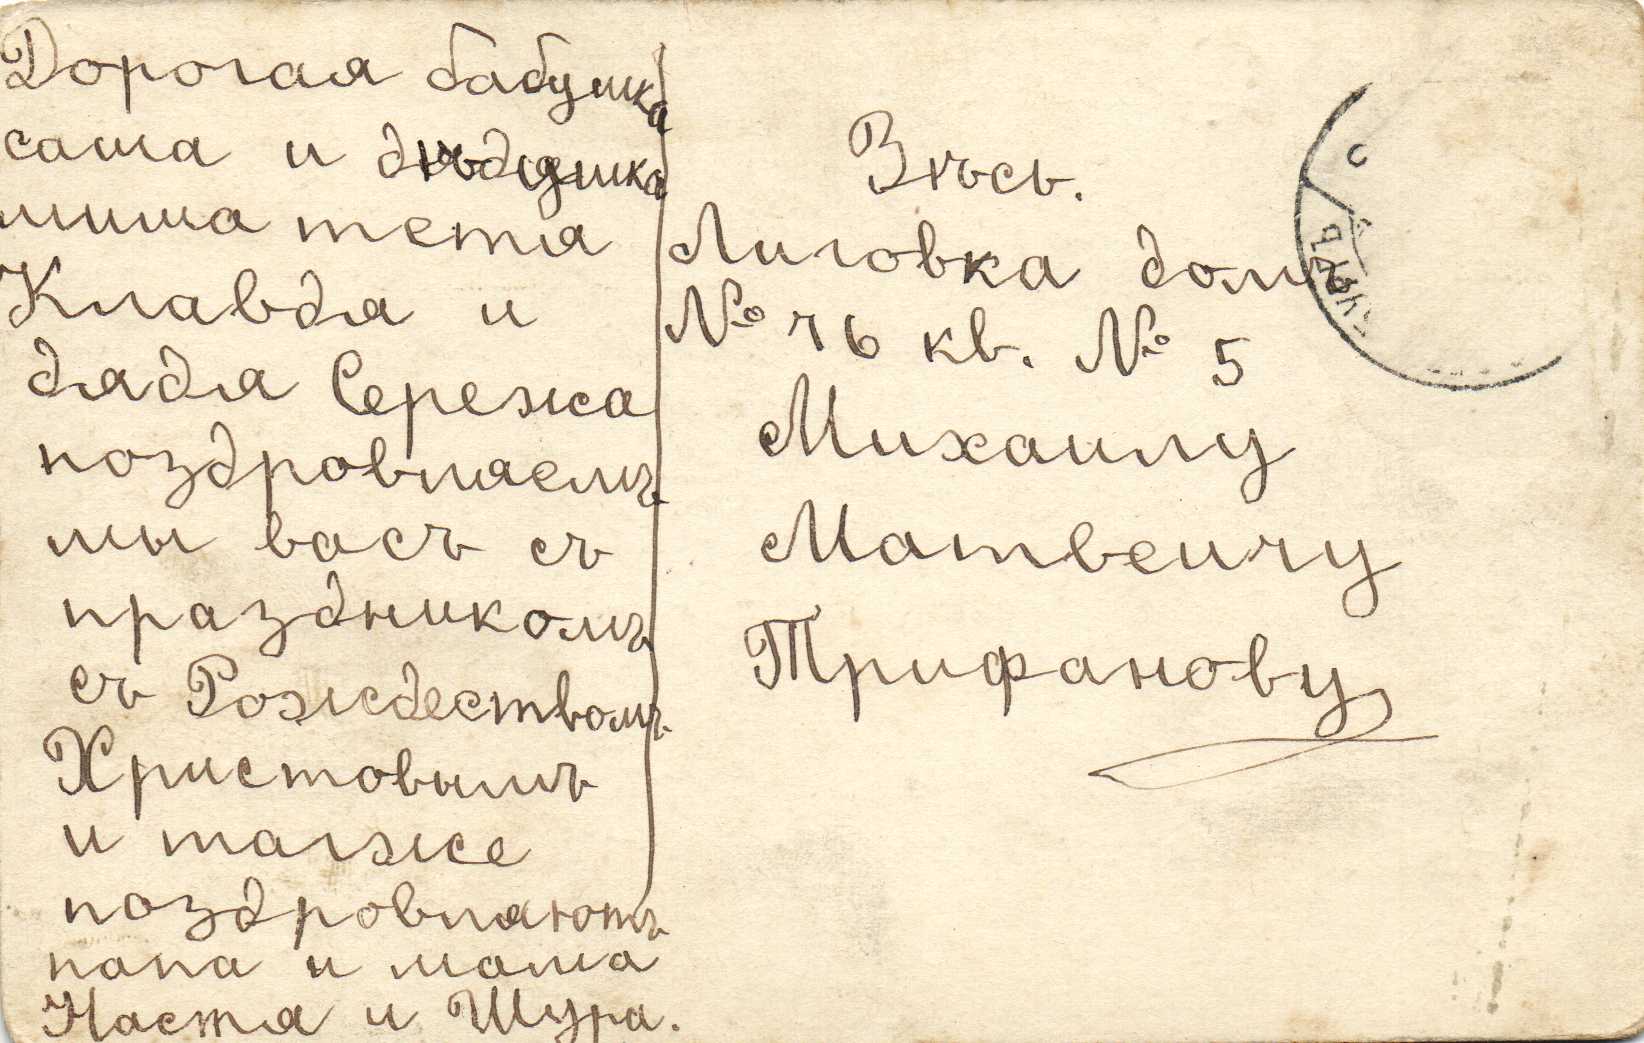 Дорогая бабушка
саша и дѣдушка
миша тетя
Клавдя и
дядя Сережа
поздровляемъ
мы васъ съ
праздникомъ
съ Рождествомъ
Христовымъ
и также
поздровляютъ
папа и мама
Настя и Шура.
Здѣсь.
Лиговка домъ
№ 76 кв. № 5
Михаилу
Матвеичу
Трифанову